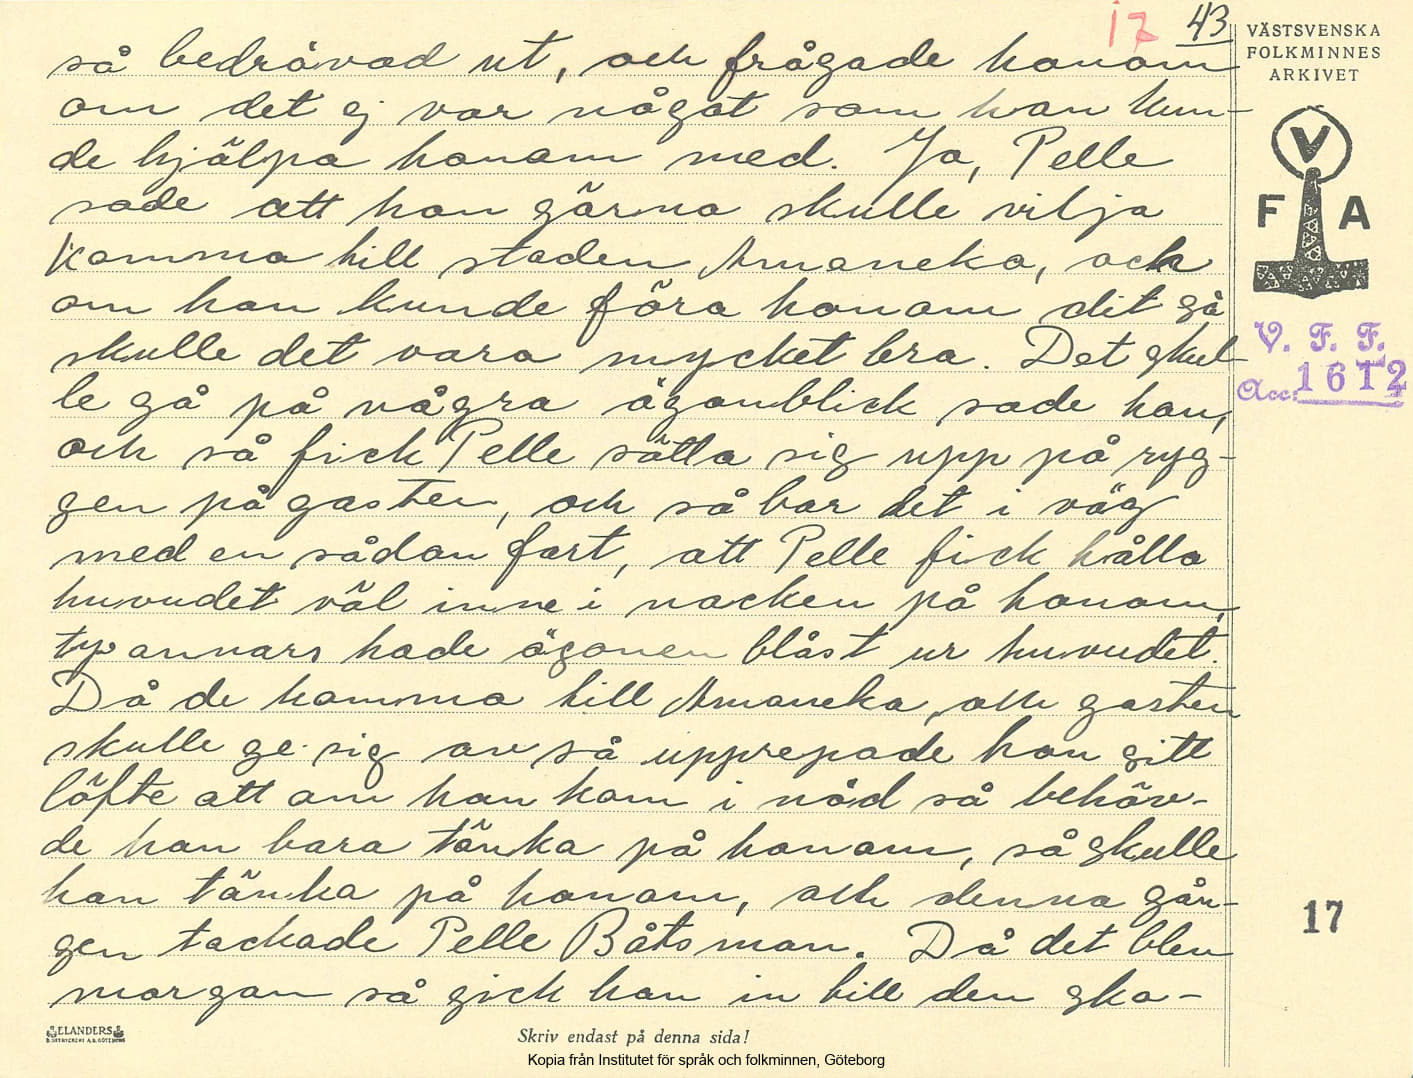 17 43
VÄSTSVENSKA
FOLKMINNES
ARKIVET
V
F A
V. F. F.
Acc: 1612
så bedrövad ut, och frågade honom
om det ej var något som han kun-
de hjälpa honom med. Ja, Pelle
sade att han gärna skulle vilja
komma till staden Amaneka, och
om han kunde föra honom dit så
skulle det vara mycket bra. Det skul-
le gå på några ögonblick sade han,
och så fick Pelle sätta sig upp på ryg-
gen på gasten, och så bar det i väg
med en sådan fart, att Pelle fick hålla
huvudet väl inne i nacken på honom,
ty annars hade ögonen blåst ur huvudet.
Då de komma till Amaneka, och gasten
skulle ge sig av så upprepade han sitt
löfte att om han kom i nöd så behöv-
de han bara tänka på honom, så skulle
han tänka på honom, och denna gån-
gen tackade Pelle Båtsman. Då det blev
morgon så gick han in till den ska-
17
ELANDERS
Skriv endast på denna sida!
Kopia från Institutet för språk och folkminnen, Göteborg